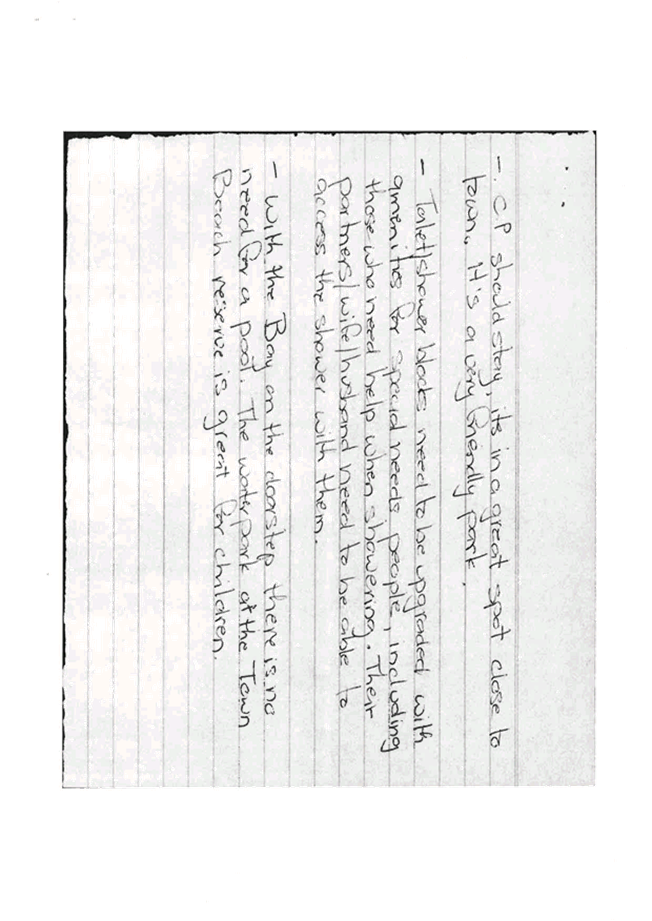 - C.P should stay, its in a great spot close to
town. It's a very friendly park.
- Toilet/shower blocks need to be upgraded with
amenities for special needs people, including
those who need help when showering. Their
partners/wife/husband need to be able to
access the shower with them.
- With the Bay on the doorstep there is no
need for a pool. The waterpark at the Town
Beach reserve is great for children.